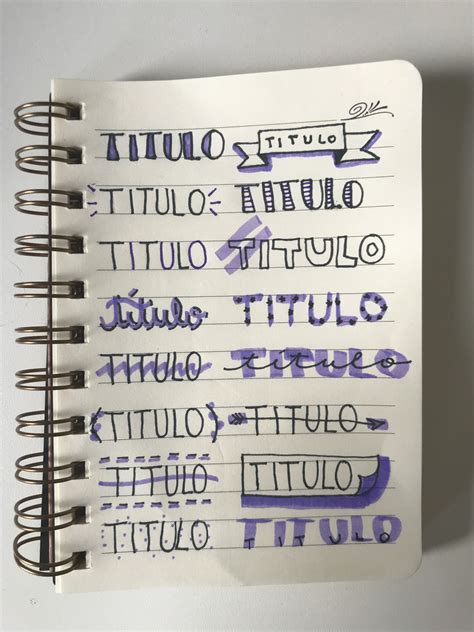 TITULO TITULO
TITULO TITULO
TITULO TITULO
título TITULO
TITULO TITULO titulo
TITULO TITULO
TITULO TITULO
TITULO TITULO TITULO